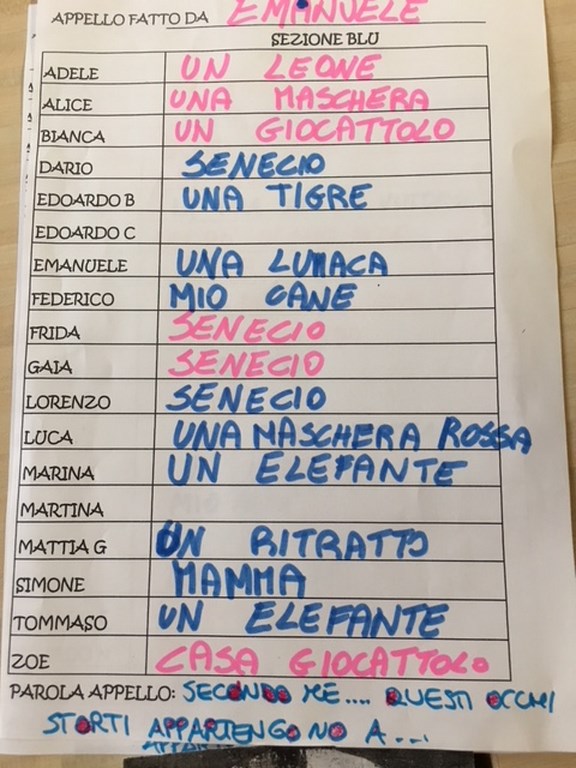 APPELLO FATTO DA EMANUELE
SEZIONE BLU
ADELE UN LEONE
ALICE UNA MASCHERA
BIANCA UN GIOCATTOLO
DARIO SENECIO
EDOARDO B UNA TIGRE
EDOARDO C
EMANUELE UNA LUMACA
FEDERICO MIO CANE
FRIDA SENECIO
GAIA SENECIO
LORENZO SENECIO
LUCA UNA MASCHERA ROSSA
MARINA UN ELEFANTE
MARTINA
MATTIA G UN RITRATTO
SIMONE MAMMA
TOMMASO UN ELEFANTE
ZOE CASA GIOCATTOLO
PAROLA APPELLO: SECONDO ME.... QUESTI OCCHI
STORTI APPARTENGONO A...